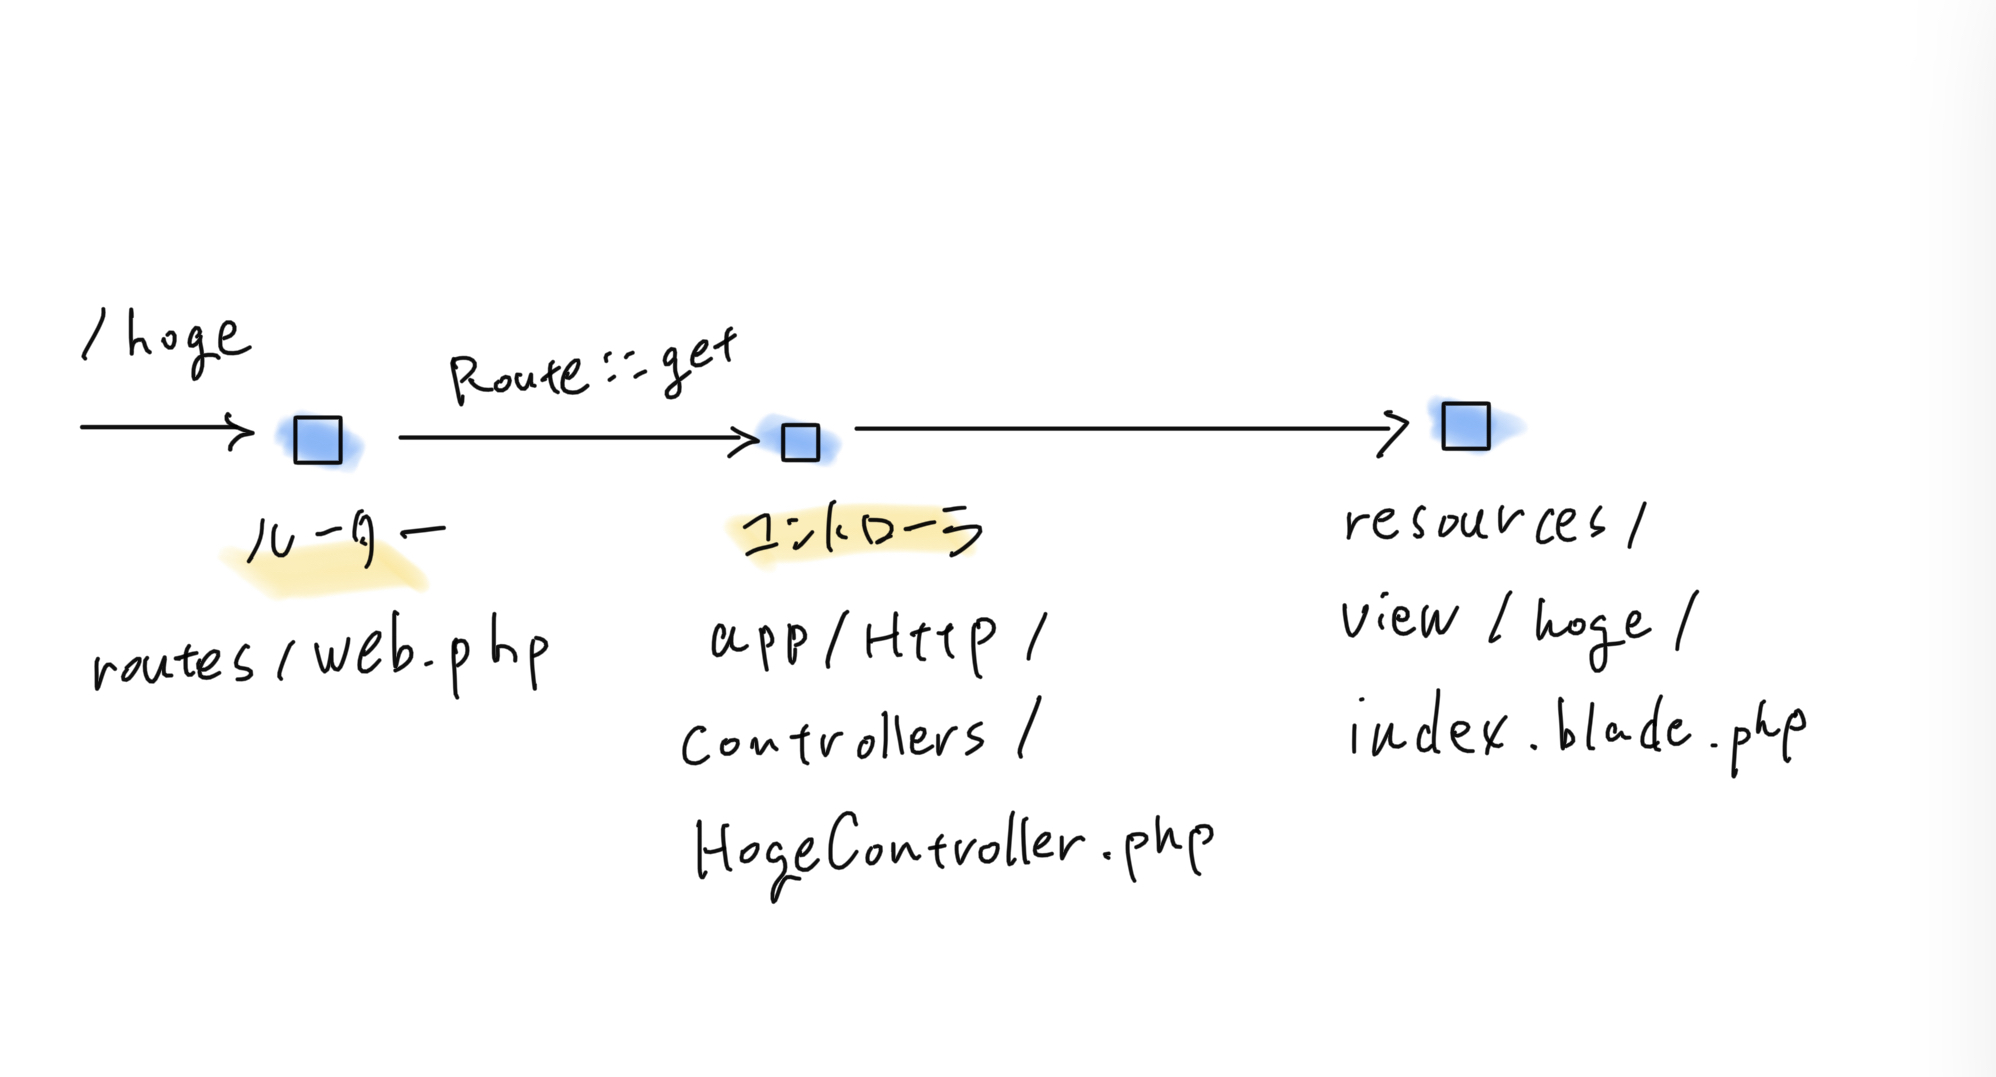 /hoge
Route::get
ルーター
コントローラ
routes/web.php
app/Http/
Controllers/
HogeController.php
resources/
view/hoge/
index.blade.php